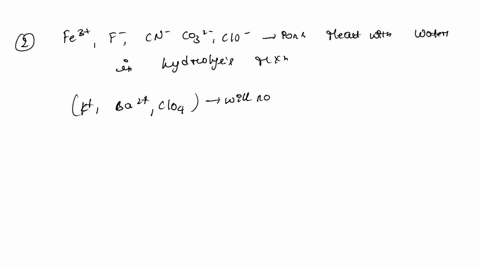 ② Fe³⁺, F⁻, CN⁻ CO₃²⁻, ClO⁻ → ions react with water
in hydrolysis rxn
(K⁺, Ba²⁺, ClO₄) → will no